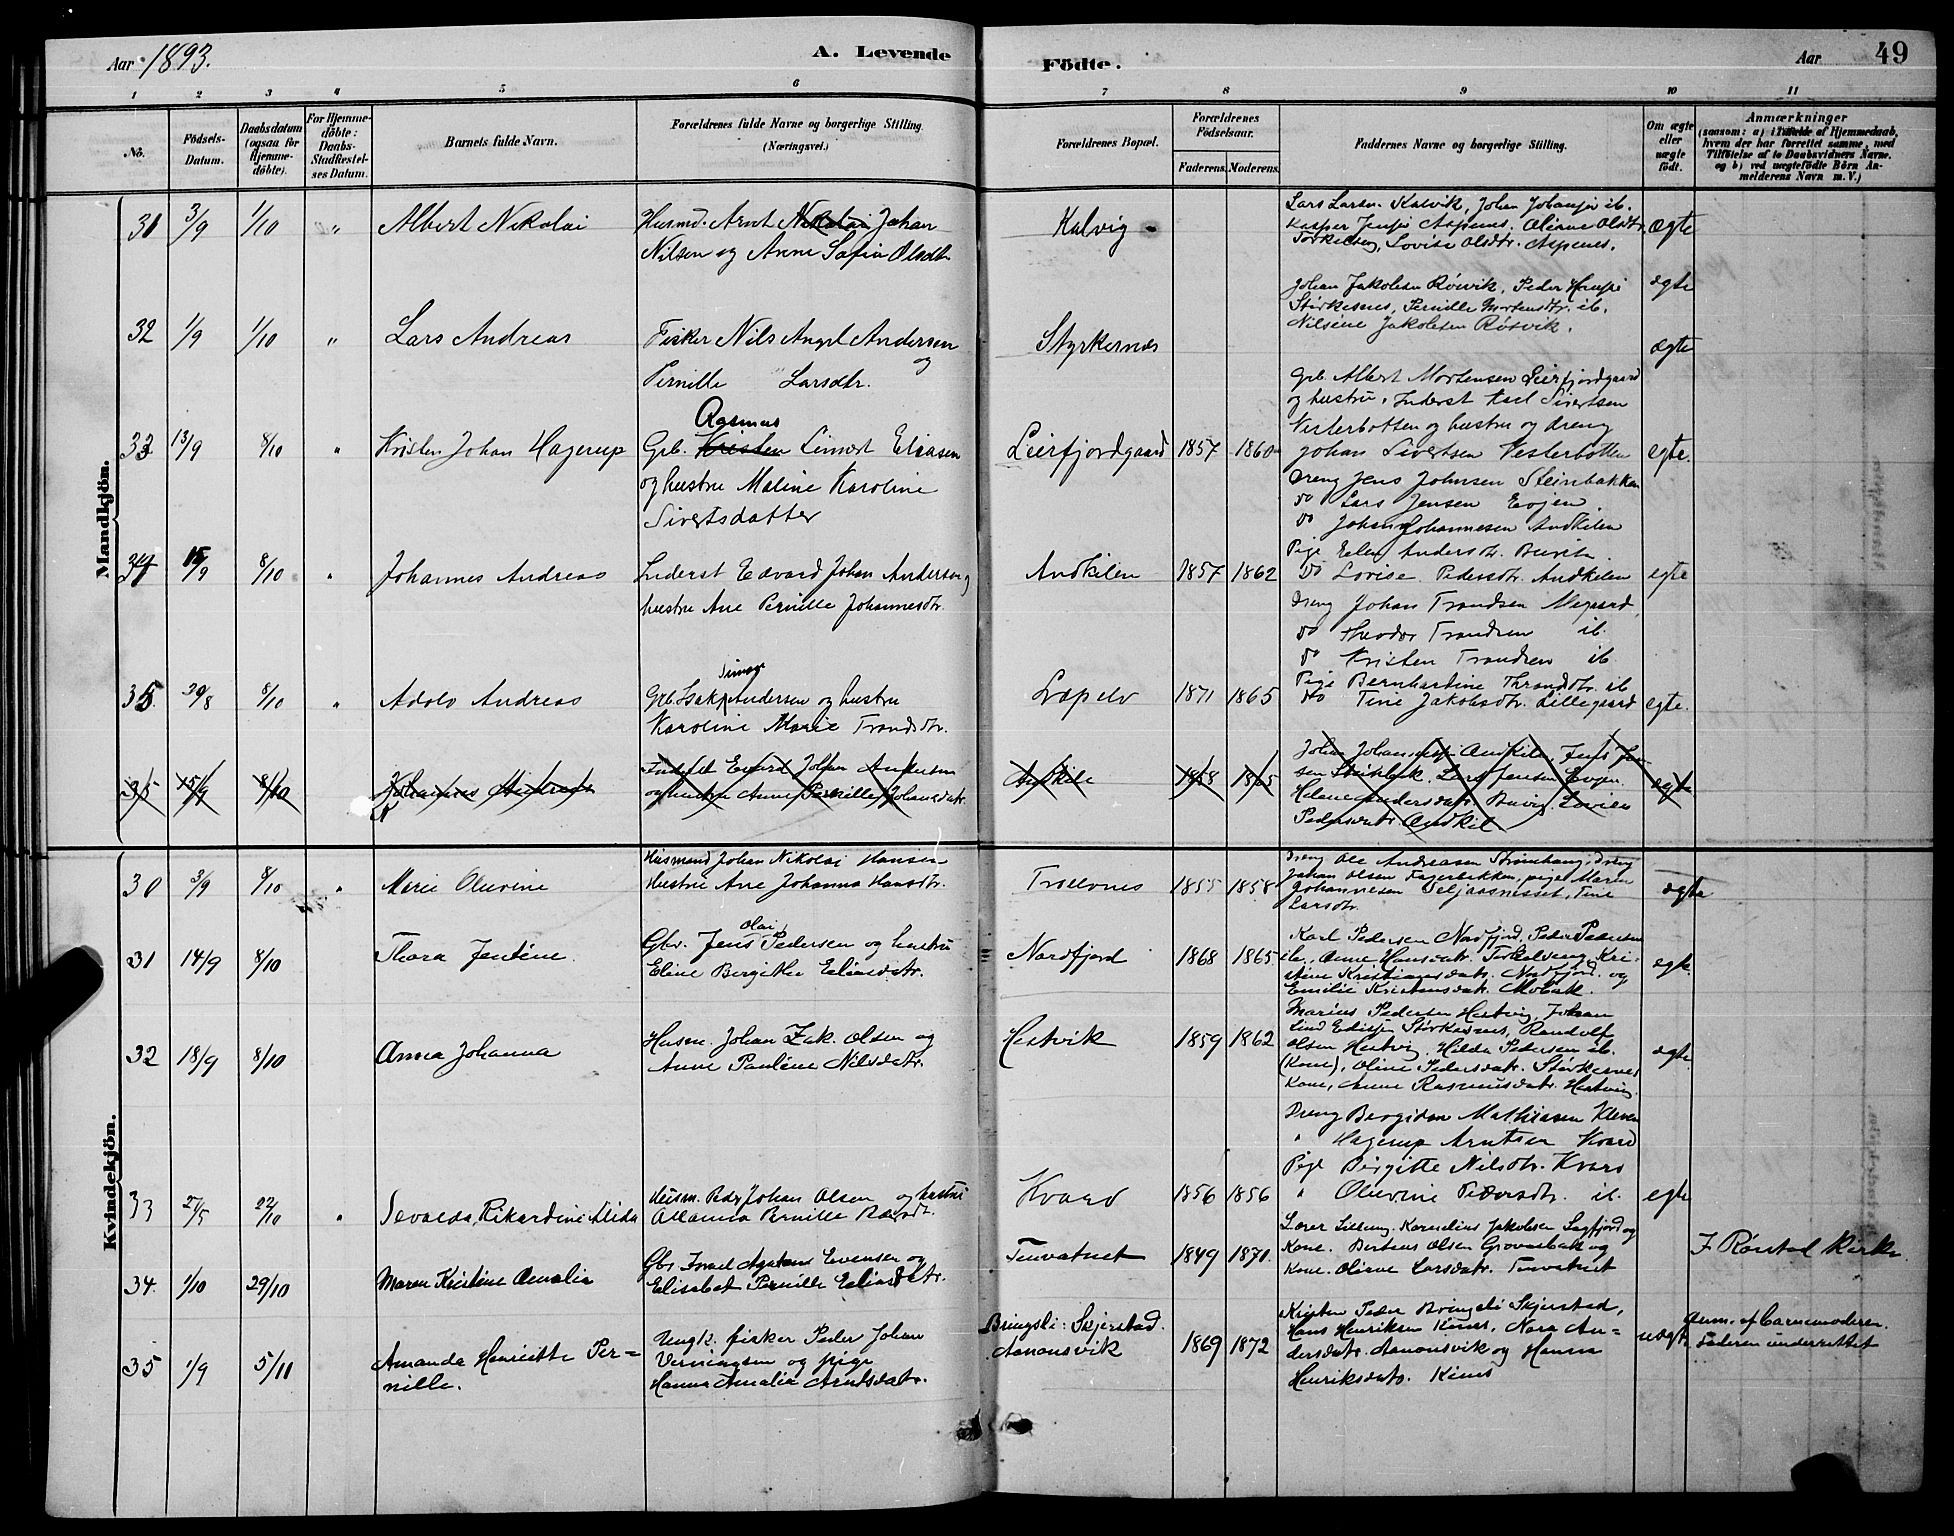 Aar 1893.
A. Levende
Födte.
Aar
49
1 2 3 4 5 6 7 8 9 10 11
No.
Födsels-Datum.
Daabsdatum (ogsaa for Hjemme-döbte).
For Hjemme-döbte: Daabs-Stadfæstel-ses Datum.
Barnets fulde Navn.
Forældrenes fulde Navne og borgerlige Stilling.
(Næringsvei.)
Forældrenes Bopæl.
Forældrenes Födselsaar.
Faderens. Moderens.
Faddernes Navne og borgerlige Stilling.
Om ægte eller uægte födt.
Anmærkninger
(saasom: a) i Tilfælde af Hjemmedaab, hvem der har forrettet samme, med Tilföielse af to Daabsvidners Navne. og b) ved uægtefödte Börn An-melderens Navn m. V.)
Mandkjön.
31 3/9 1/10 " Albert Nikolai
Husmd. Arnt Nikolai Johan
Nilsen og Anne Sofie Olsdtr.
Kalvig
Lars Larsen Kalvik, Johan Johansen ib.
Kasper Jensen Aspenes, Oliane Olsdtr.
Torkelseng, Lovise Olsdtr. Aspenes.
ægte
32 1/9 1/10 " Lars Andreas
Fisker Nils Angel Andersen
og
Pernille Larsdtr.
Styrkesnes
Johan Jakobsen Røsvik, Peder Hansen
Størkesnes, Pernille Mortensdtr. ib.
Nilsine Jakobsen Røsvik.
ægte
ægte
33 13/9 8/10 " Kristen Johan Hagerup
Rasmus
Grb. Kristen Limort Eliasen
og hustru Maline Karoline
Sivertsdatter
Leirfjordgaard 1857 1860
Grb. Albert Mortensen Leirfjordgaard
og hustru, Inderst Karl Sivertsen
Vesterbotten og hustru og dreng
Johan Sivertsen Vesterbotten
egte.
34 15/9 8/10 " Johannes Andreas
Inderst Edvard Johan Andersen og
hustru Ane Pernille Johannesdtr.
Andkilen 1857 1862
Dreng Jens Johnsen Steinbakken
Do Lars Jensen Evjen
Do Johan Johannesen Andkilen
Pige Elen Andersdtr. Buvik
Do Lovise Pedersdtr. Andkilen
egte
35. 30/8 8/10 " Adolv Andreas
Grb. Isak Andersen og hustru
Karoline Marie Trondsdtr.
Løpelv 1871 1865
Dreng Johan Trondsen Megaard
Do Theodor Trondsen ib.
Do Kristen Trondsen ib.
Pige Bernhardine Throndsdtr. ib
Do Tine Jakobsdtr. Lillegaard
egte.
35 15/9 8/10 Johannes Andreas
Inderst Edvard Johan Andersen
og hustru Anne Pernille Johansdatr.
Andkile 1858 1865
Johan Johannesen Andkile, Jens Jen-
sen Steinbak, Lars Jensen Evjen
Helene Andersdatr. Buvig, Lovise
Pedersdatr. Andkil
egte
Kvindekjön.
30 3/9 8/10 " Merie Oluvine
Husmand Johan Nikolai Hansen
Hustru Ane Johanna Hansdtr.
Trollones 1855 1858
Dreng Ole Andreasen Strømhaug, dreng
Johan Olsen Fagerbakken, pige Maren
Johannesen Veljaasnesset, Tine
Larsdtr.
ægte
31 14/9 8/10 Thora Jentine
Olai
Gbr. Jens Pedersen og hustru
Eline Bergithe Eliasdatr.
Nordfjord 1868 1865
Karl Pedersen Nordfjord, Peder Pedersen
ib., Anne Hansdatr. Torkelseng, Kri-
stine Kristiansdatr. Nordfjord og
Emilie Kristensdatr. Mobak.
egte.
32 18/9 8/10 Anna Johanna
Husm. Johan Zak. Olsen og
Anne Pauline Nilsdatr.
Hestvik 1859 1862
Marius Pedersen Hestvig, Johan
Lind Edissen Størkesnes, Randolf
Olsen Hestvig, Hilda Pedersen ib.
(Kone), Oline Pedersdatr. Størkesnes
Kone, Anne Rasmusdatr. Hestvig.
ægte
33 27/5 22/10 " Sevalda Rikardine Alida
Husm. Peder Johan Olsen og hustru
Pernille
Kvarv 1856 1856
Dreng Bergiton Mathiasen Kleven
" Hagerup Arntsen Kvarv
Pige Birgitte Nilsdtr. Kvarv
" Oluvine Pedersdtr. ib.
egte
34. 1/10 29/10 Maren Kristine Amalia
Gbr. Israel Agaton Evensen og
Elisabet Pernille Eliasdatr.
Tenvatnet 1849 1870.
Lærer Kornelius Jakobsen Sagfjord og
Kone. Berteus Olsen Grovasbak og
Kone. Oliane Larsdatr. Tenvatnet
I Rørstad Kirke
35 1/9 5/11 Amanda Henriette Per-
nille.
Ungk. fisker Peder Johan
Verningsen og pige
Hanna Amalia Arntsdatr.
Bringsli: Skjerstad.
Aanonsvik 1869 1872
Kristen Peder Bringsli Skjerstad,
Hans Henriksen Kines, Nora An-
dersdatr. Aanonsvik og Hanna
Henriksdatr. Kines
uægte
Anm. af Barnemoderen.
Faderen underrettet